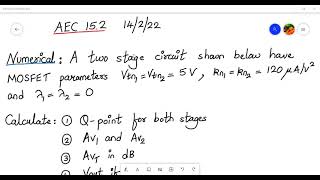 AEC 15.2 14/2/22
Numerical: A two stage circuit shown below have
MOSFET parameters Vtn₁=Vtn₂ = 5V, kn₁=kn₂ = 120 μA/V²
and λ₁ = λ₂ = 0
Calculate: ① Q-point for both stages
② Av₁ and Av₂
③ AvT in dB